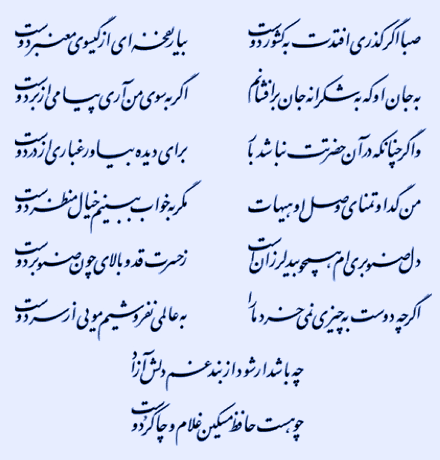 صبا اگر گذری افتدت به کشور دوست بیار نفحه ای از گیسوی معنبر دوست
به جان او که به شکرانه جان برافشانم اگر به سوی من آری پیامی از بر دوست
و اگر چنانکه در آن حضرتت نباشد بار برای دیده بیاور غباری از در دوست
من گدا و تمنای وصل او هیهات مگر به خواب ببینم خیال منظر دوست
دل صنوبری ام همچو بید لرزان است ز حسرت قد و بالای چون صنوبر دوست
اگر چه دوست به چیزی نمی خرد ما را به عالمی نفروشیم مویی از سر دوست
چه باشد ار شود از بند غم دلش آزاد
چو هست حافظ مسکین غلام و چاکر دوست